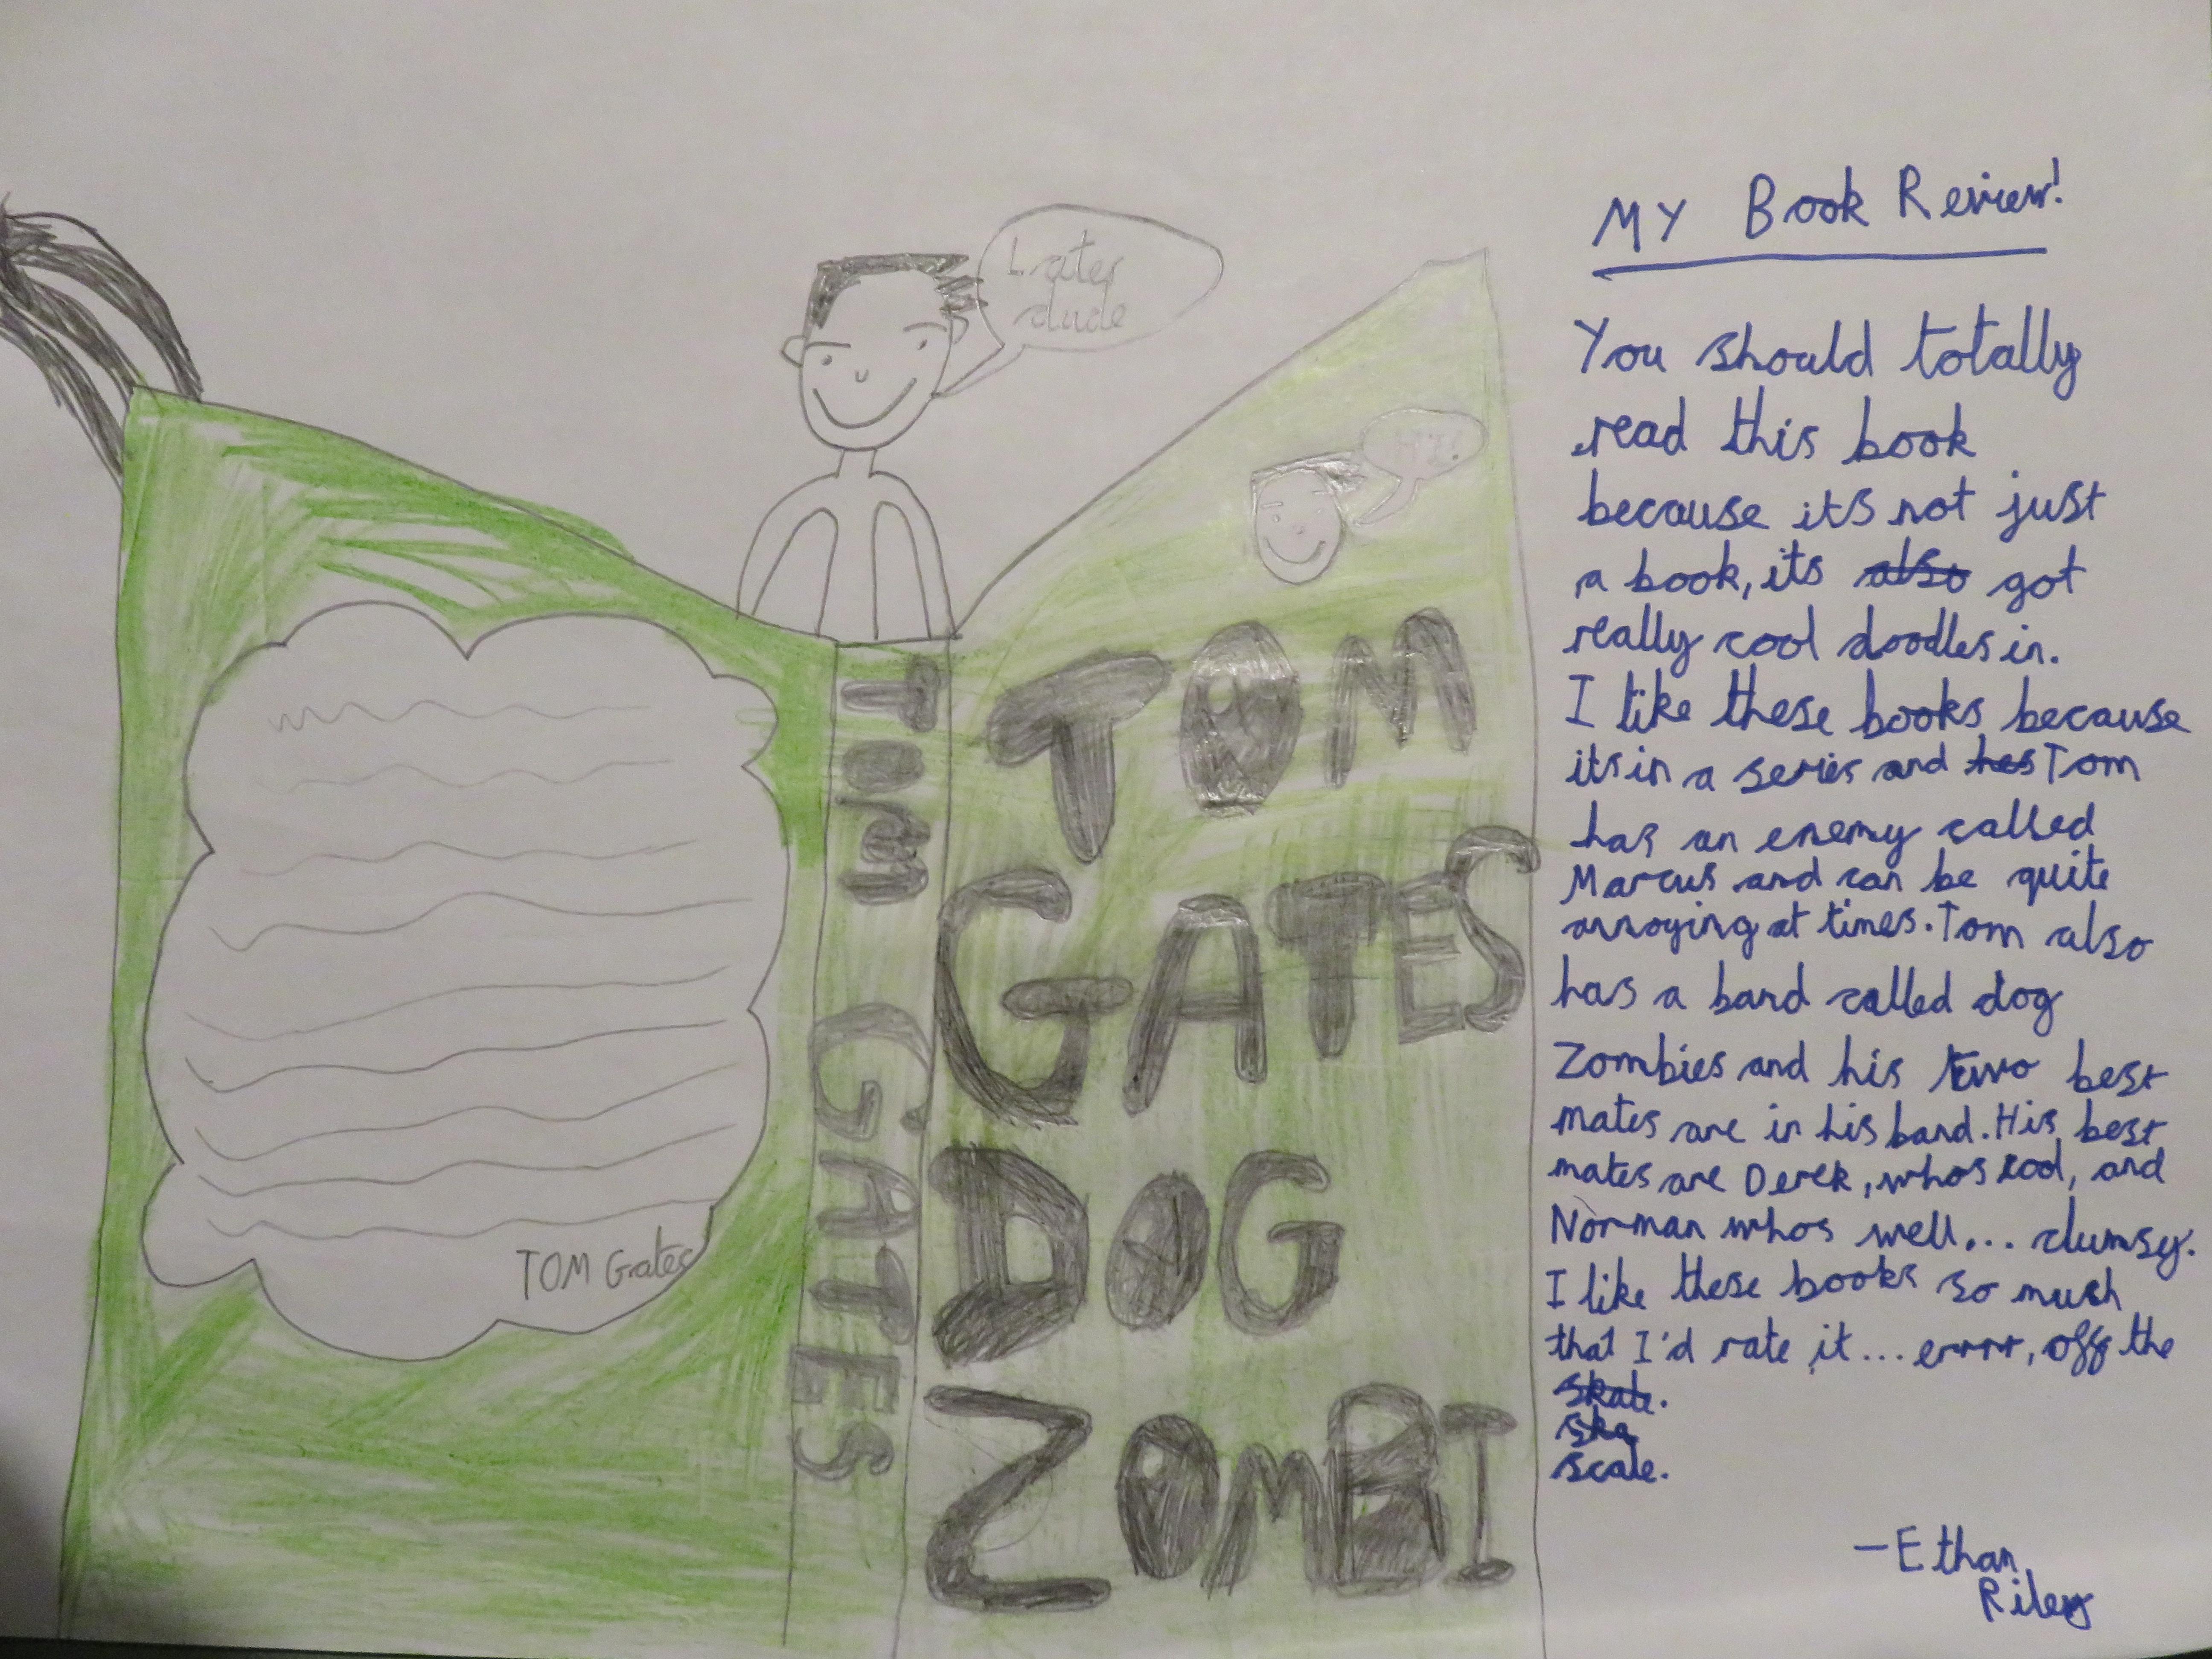 Later
dude
HI!
TOM Gates
TOM GATES
TOM
GATES
DOG
ZOMBI
MY Book Review!
You should totally
read this book
because its not just
a book, its also got
really cool doodles in.
I like these books because
its in a series and hes Tom
has an enemy called
Marcus and can be quite
annoying at times. Tom also
has a band called dog
Zombies and his two best
mates are in his band. His best
mates are Derek, whos cool, and
Norman whos well... clumsy.
I like these books so mush
that I'd rate it... errrr, off the
skate.
ska
scale.
-Ethan
Riley